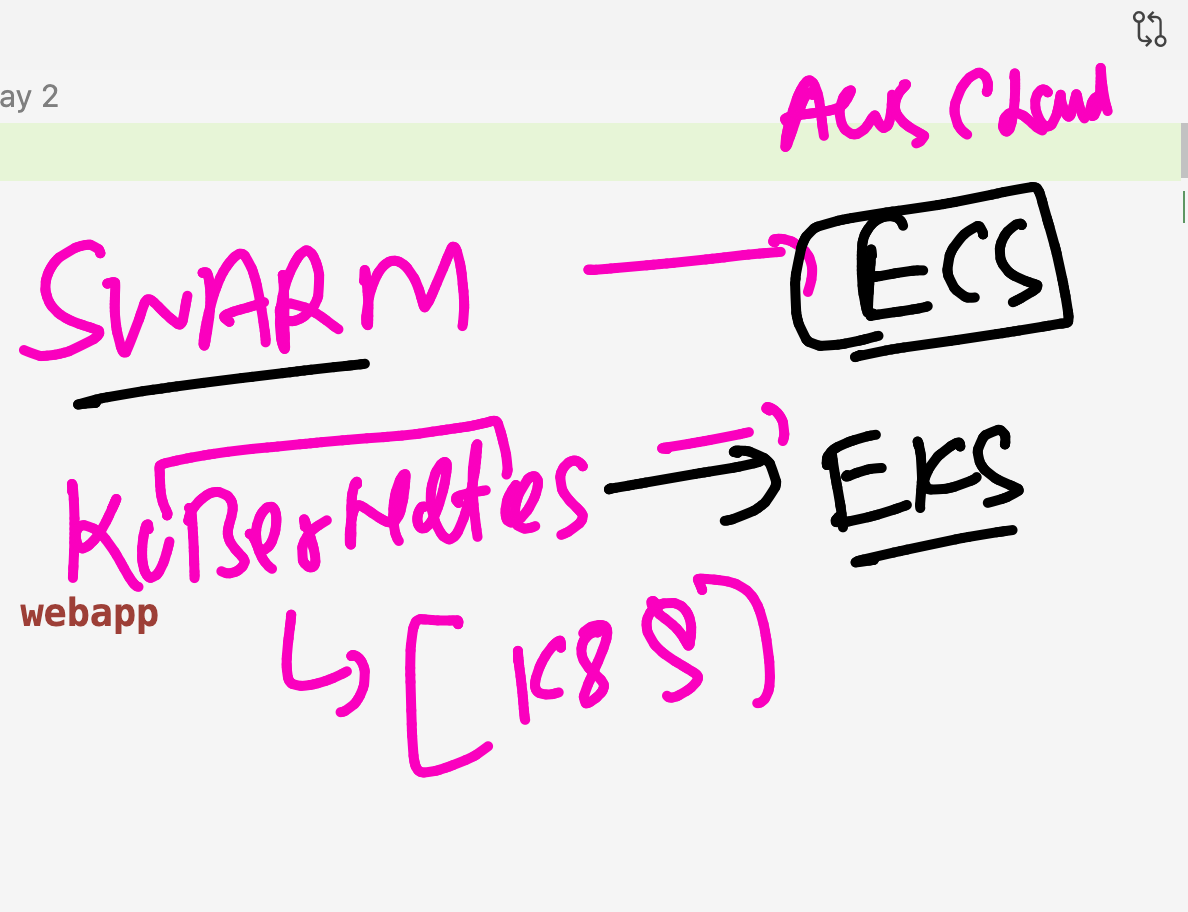 ay 2
AWS Cloud
SWARM → ECS
KuBerNetes → EKS
webapp
↳ [K8S]